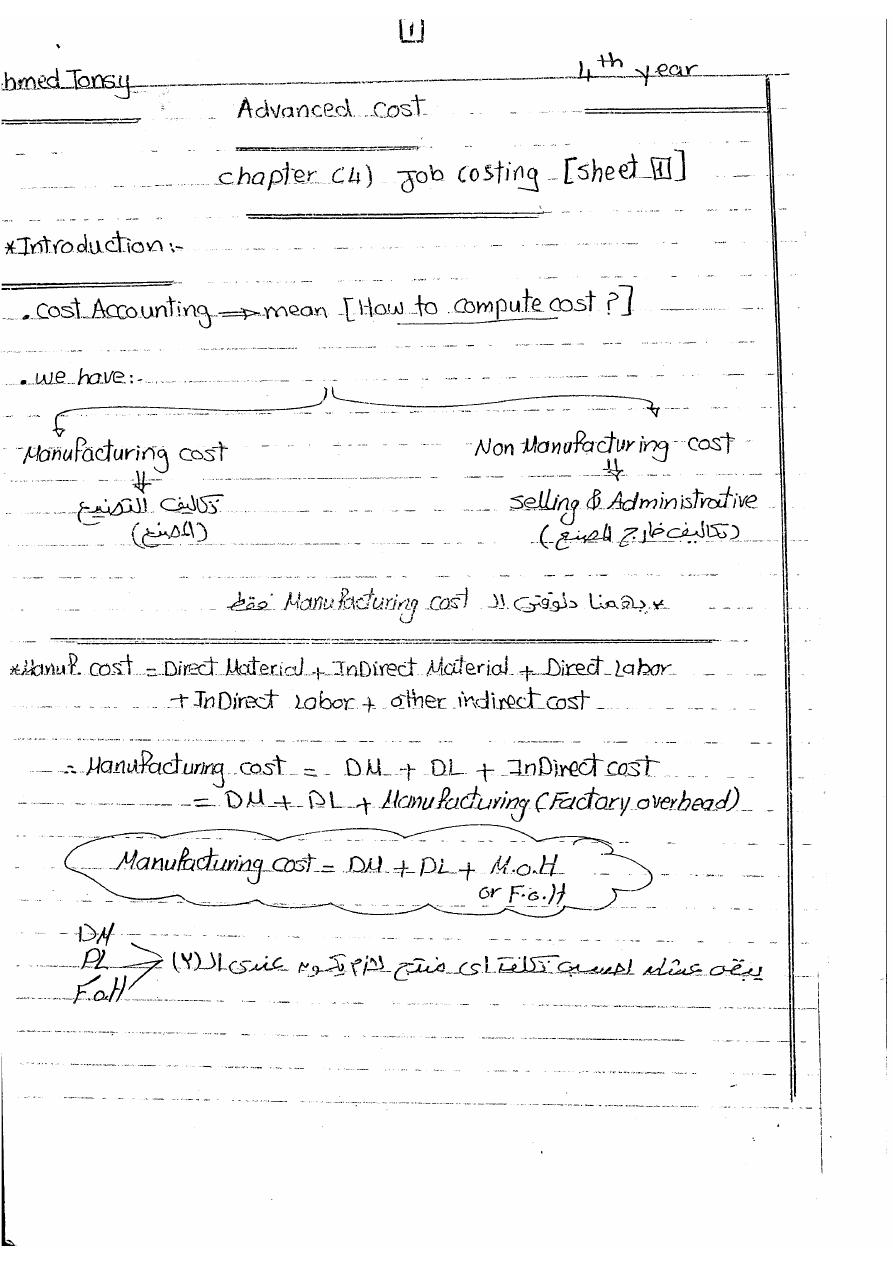 [1]
hmed Tonsy
4th year
Advanced cost
chapter (4) Job costing [sheet 1]
*Introduction:-
. cost Accounting ⇒ mean [How to compute cost ?]
. we have:-
Manufacturing cost
Non Manufacturing cost
تكاليف التصنيع
(المصنع)
selling & Administrative
(تكاليف خارج المصنع)
* يهمنا دلوقتى الـ Manufacturing cost فقط
*Manuf. cost = Direct Material + InDirect Material + Direct Labor
+ InDirect Labor + other indirect cost
∴ Manufacturing cost = DM + DL + InDirect cost
= DM + DL + Manufacturing (Factory overhead)
Manufacturing cost = DM + DL + M.o.H
or F.o.H
DM
DL
F.o.H
يبقى عشان احسب تكلفة اى منتج لازم يكون عندى الـ